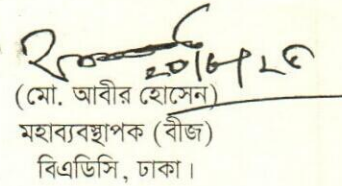 (মো. আবীর হোসেন)
মহাব্যবস্থাপক (বীজ)
বিএডিসি, ঢাকা।